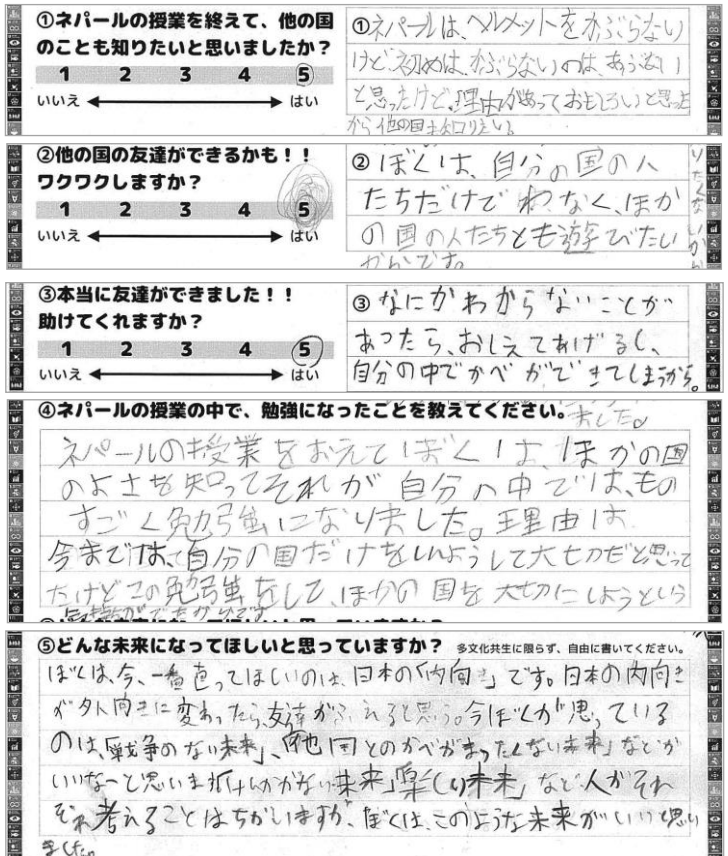 ①ネパールの授業を終えて、他の国
のことも知りたいと思いましたか?
1 2 3 4 5
いいえ はい
①ネパールは、ヘルメットをかぶらない
けど、初めは、かぶらないのは、あぶない
と思ったけど、理由があっておもしろいと思った
から他の国も知りたい
②他の国の友達ができるかも!!
ワクワクしますか?
1 2 3 4 5
いいえ はい
②ぼくは、自分の国の人
たちだけでわなく、ほか
の国の人たちとも遊びたい
からです。
③本当に友達ができました!!
助けてくれますか?
1 2 3 4 5
いいえ はい
③なにかわからないことが
あったら、おしえてあげるし、
自分の中でかべができてしまうから。
④ネパールの授業の中で、勉強になったことを教えてください。
ました。
ネパールの授業をおえてぼくは、ほかの国
のよさを知ってそれが自分の中では、もの
すごく勉強になりました。理由は
今までは、自分の国だけをしんようして大切だと思って
たけどこの勉強をして、ほかの国を大切にしようという
気持ちができたからです
⑤どんな未来になってほしいと思っていますか? 多文化共生に限らず、自由に書いてください。
ぼくは、今、一番 ってほしいのは、日本の「内向き」です。日本の内向き
が外向きに変わったら、友達がふえると思う。今ぼくが思っている
のは、「戦争のない未来」、「他国とのかべがまったくない未来」などが
いいなーと思います 未来」「楽しい未来」など人がそれ
ぞれ考えることはちがいますが、ぼくは、このような未来がいいと思い
ました。